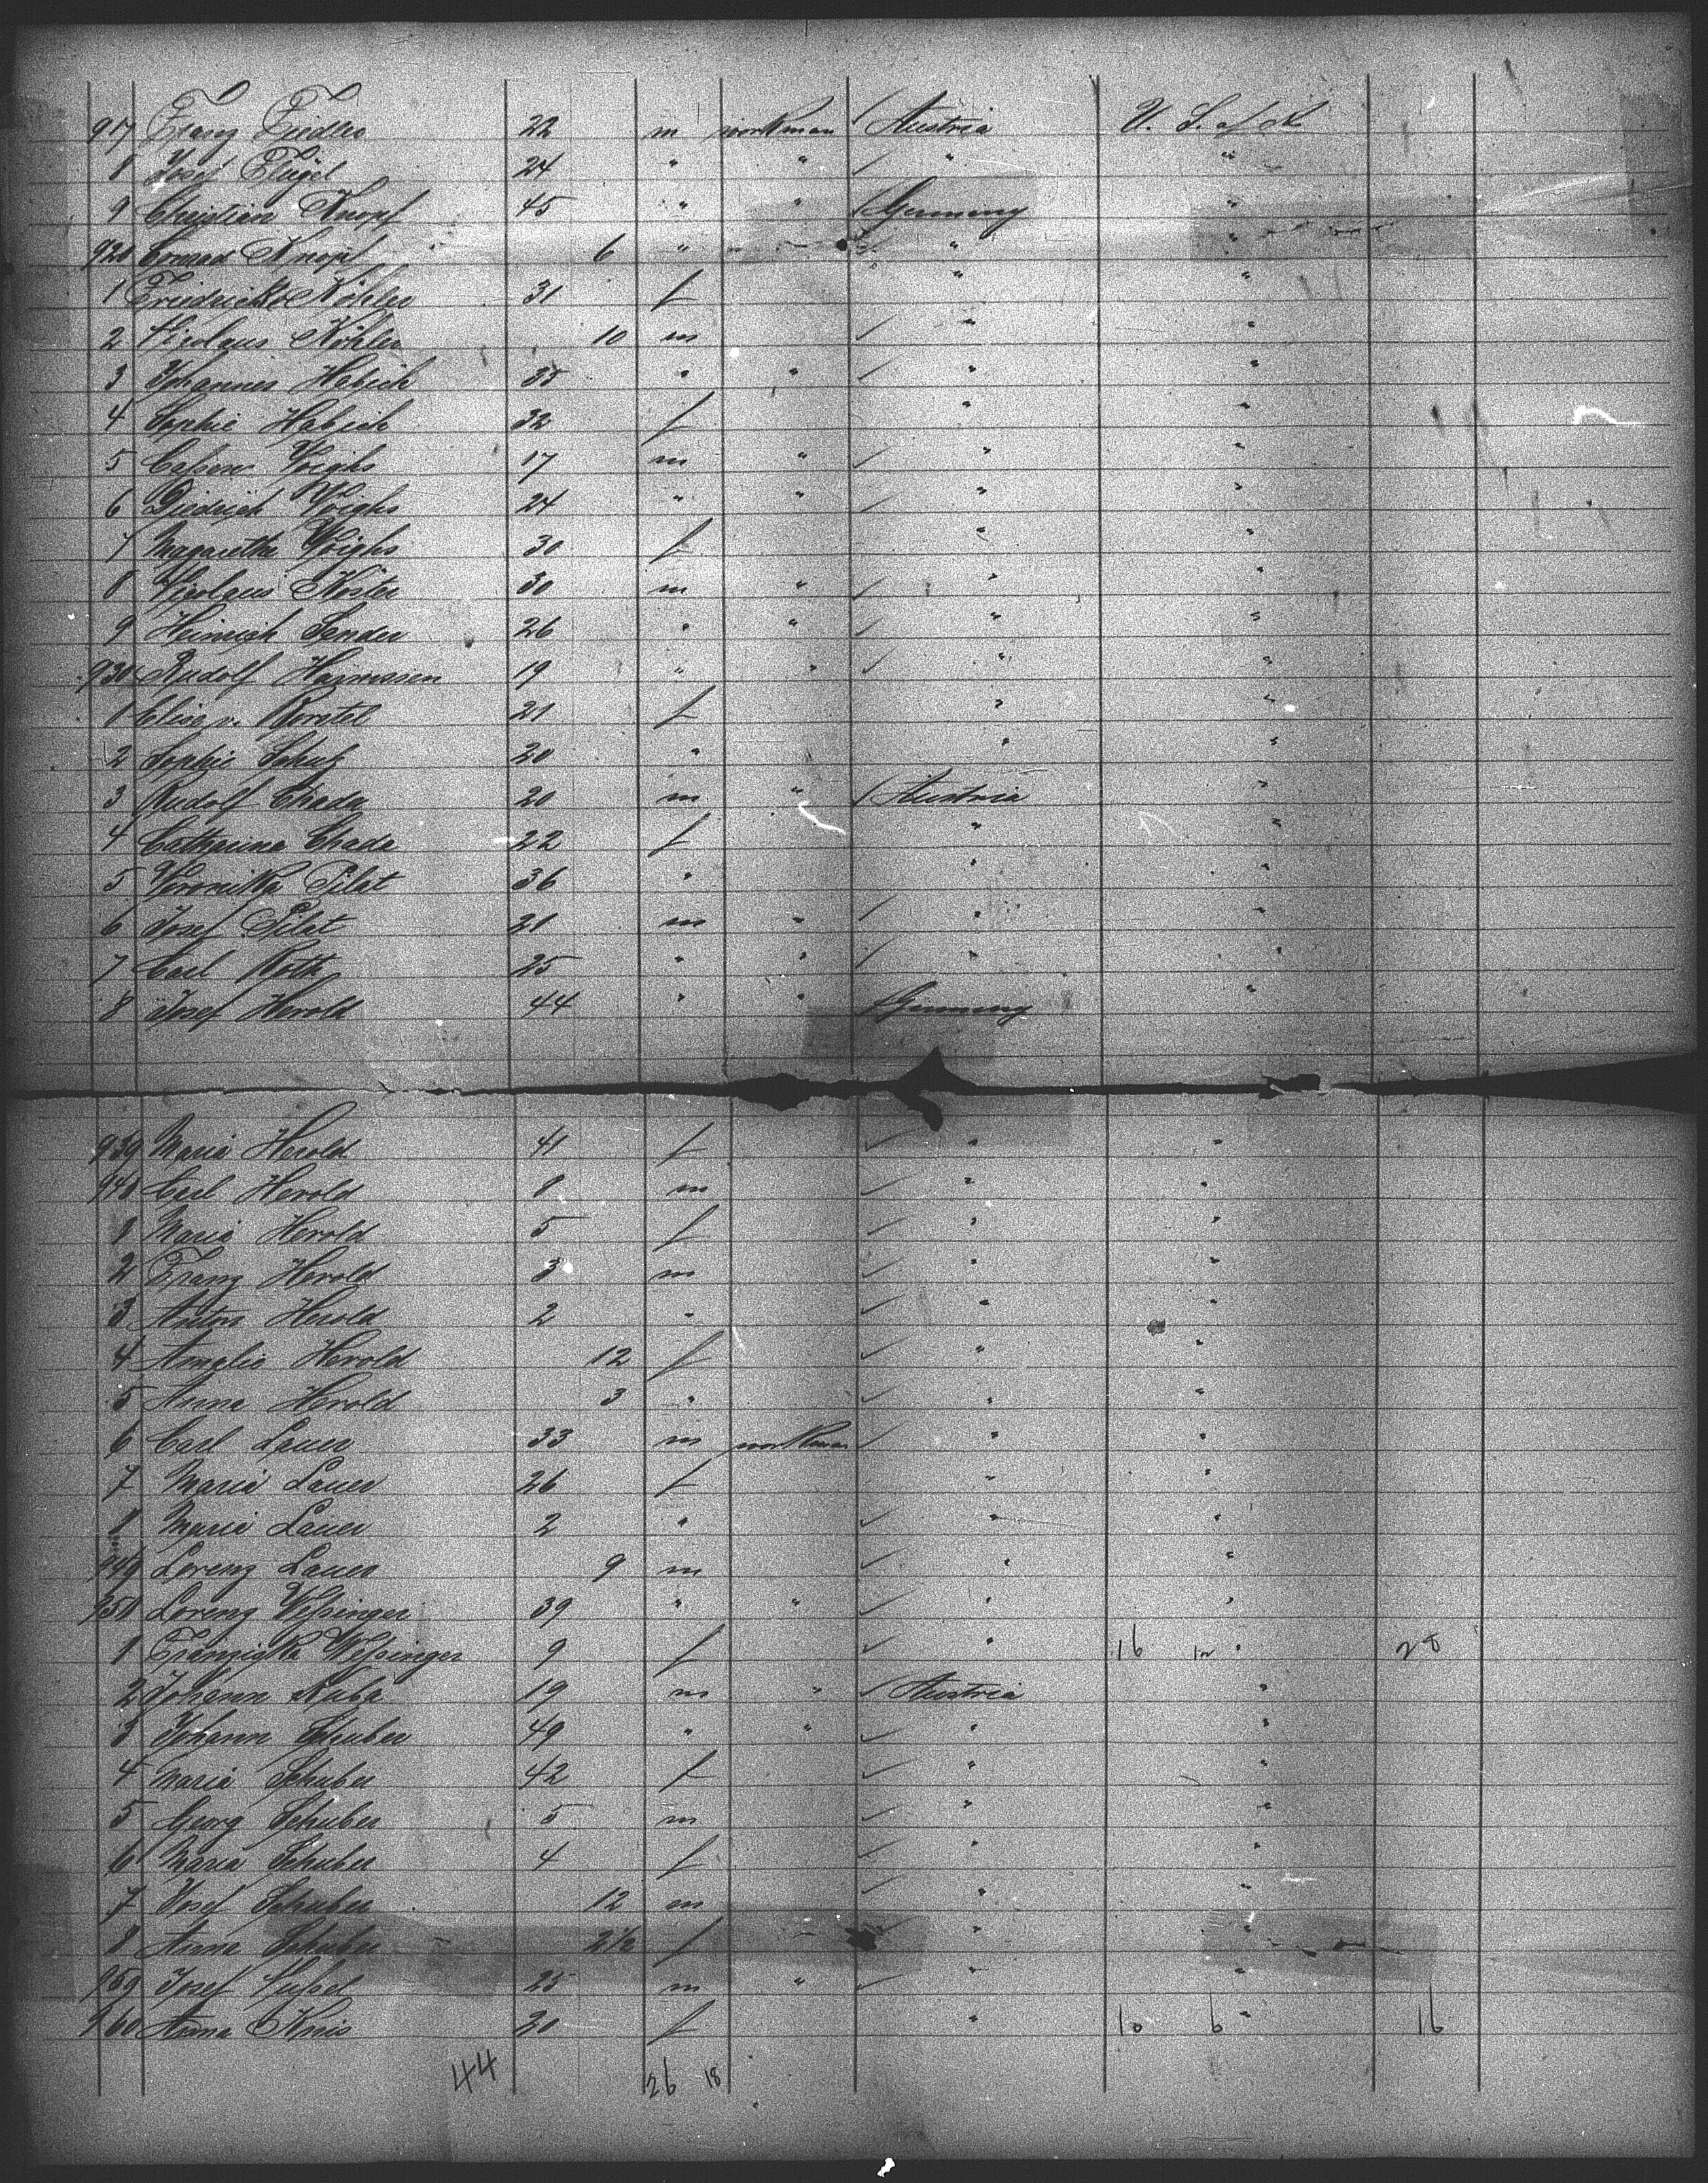 917 Franz Fiedler 22 m workman Austria U. S. of A.
8 Josef Flügel 24 " " " "
9 Christian Knopf 45 " " Germany "
920 Conrad Knopf 6 " " "
1 Friedricke Köhler 31 f " "
2 Nicolaus Köhler 10 m " "
3 Johannes Habich 35 " " " "
4 Sophie Habich 32 f " "
5 Voighs 17 m " " "
6 Diedrich Voighs 24 " " " "
7 Magaretha Voighs 30 f " "
8 Nicolaus Köster 30 m " " "
9 Heinrich Sander 26 " " " "
930 Rudolf Harmssen 19 " " " "
1 Elise v. 21 f " "
2 Sophie Schulz 20 " " "
3 Rudolf Chada 20 m " Austria "
4 Catharina Chada 22 f " "
5 Veronika Pilat 36 " " "
6 Josef Pilat 21 m " " "
7 Carl Roth 25 " " " "
8 Josef Herold 44 " " Germany "
939 Maria Herold 41 f " "
940 Carl Herold 8 m " "
1 Maria Herold 5 f " "
2 Franz Herold 3 m " "
3 Anton Herold 2 " " "
4 Amalie Herold 12 f " "
5 Anna Herold 3 " " "
6 Carl Lauer 33 m workman " "
7 Maria Lauer 26 f " "
8 Maria Lauer 2 " " "
949 Lorenz Lauer 9 m " "
950 Lorenz Weßinger 39 " " " "
1 Franziska Weßinger 9 f " 16 12 " 28
2 Johann Kuba 19 m " Austria "
3 Johann Schuber 49 " " " "
4 Maria Schuber 42 f " "
5 Georg Schuber 5 m " "
6 Maria Schuber 4 f " "
7 Josef Schuber 12 m " "
8 Anna Schuber 2½ f " " "
959 Josef 25 m " " "
960 Anna 20 f " 10 6 " 16
44 26 18